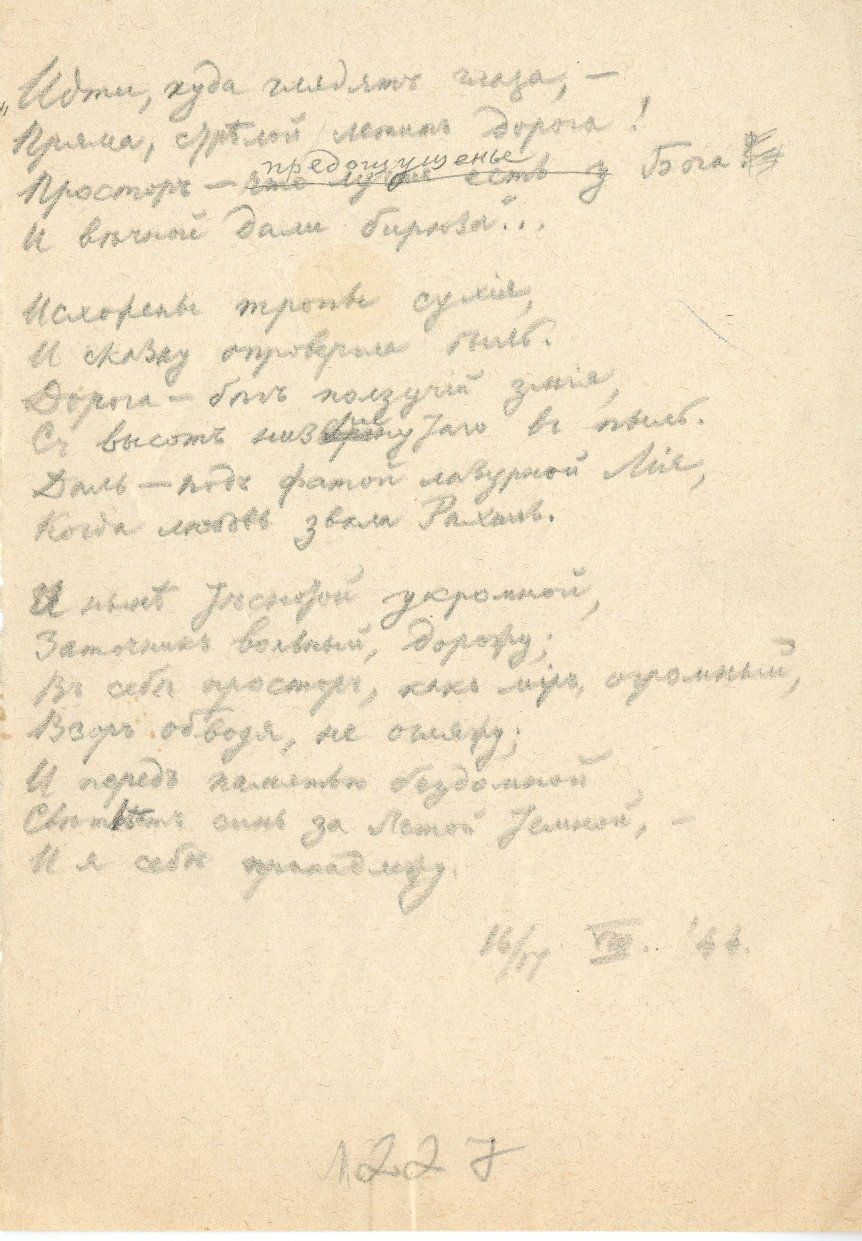 „Идти, куда глядятъ глаза, —
Пряма, стрѣлой летитъ дорога!
предощущенье
Просторъ — что лучше есть у Бога
И вѣчной дали бирюза"...
Исхожены тропы сухія,
И сказку опровергла быль.
Дорога — былъ ползучій змія,
Съ высотъ низвергнутаго въ пыль.
Даль — подъ фатой лазурной Лія,
Когда любовь звала Рахиль.
И нынѣ тѣснотой укромной,
Заточникъ вольный, дорожу;
Въ себѣ просторъ, какъ міръ, огромный,
Взоръ обводя, не огляжу;
И передъ памятью бездомной
Свѣтлѣетъ синь за Летой темной, —
И я себѣ принадлежу.
16/17 VIII. '44.
1227